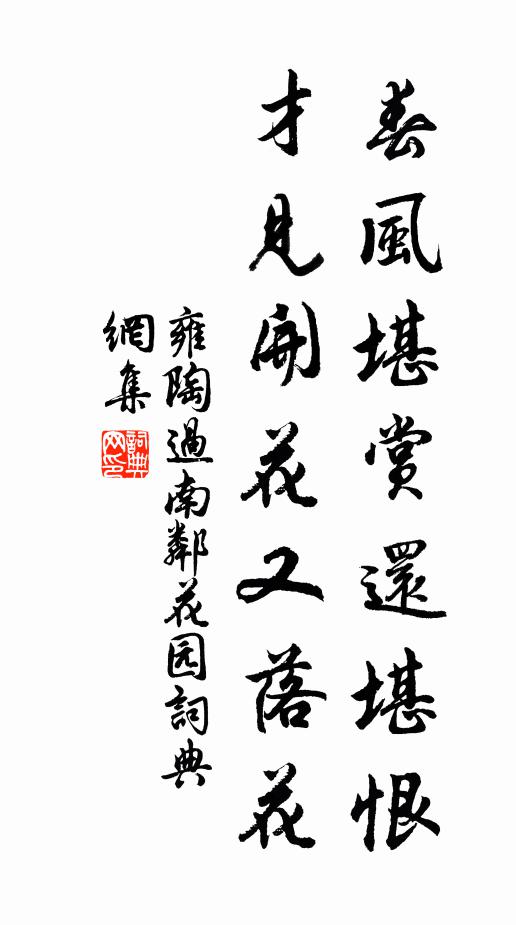 春風堪賞還堪恨
才見開花又落花
雍陶過南鄰花园詞典
網集
詞典
网印